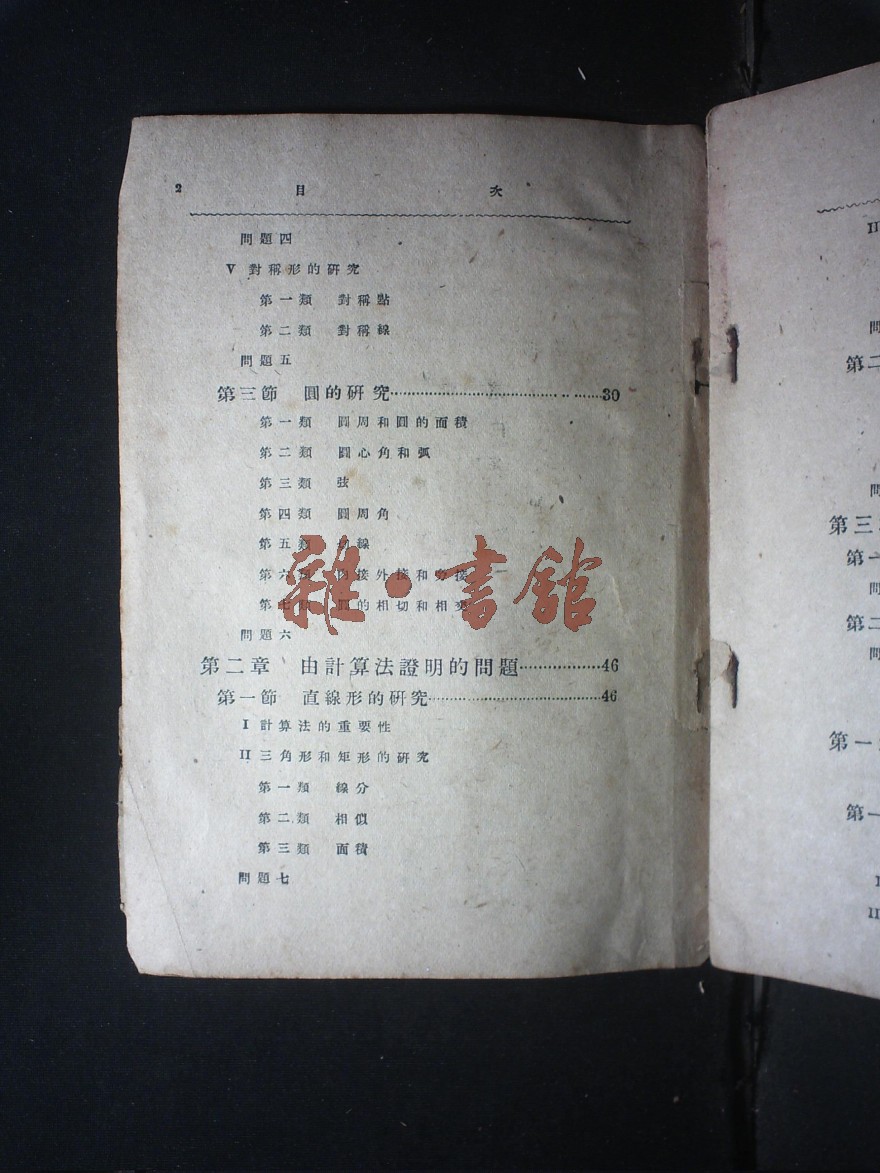 2 目 次
問題四
V 對稱形的研究
第一類 對稱點
第二類 對稱線
問題五
第三節 圓的研究………………………30
第一類 圓周和圓的面積
第二類 圓心角和弧
第三類 弦
第四類 圓周角
第五類 切線
第六類 內接外接和旁接
第七類 圓的相切和相交
問題六
第二章 由計算法證明的問題……………46
第一節 直線形的研究………………………46
I 計算法的重要性
II 三角形和矩形的研究
第一類 線分
第二類 相似
第三類 面積
問題七
雜·書館
II
問
第二
問
第三
第一
問
第二
問
第一
第一
I
II